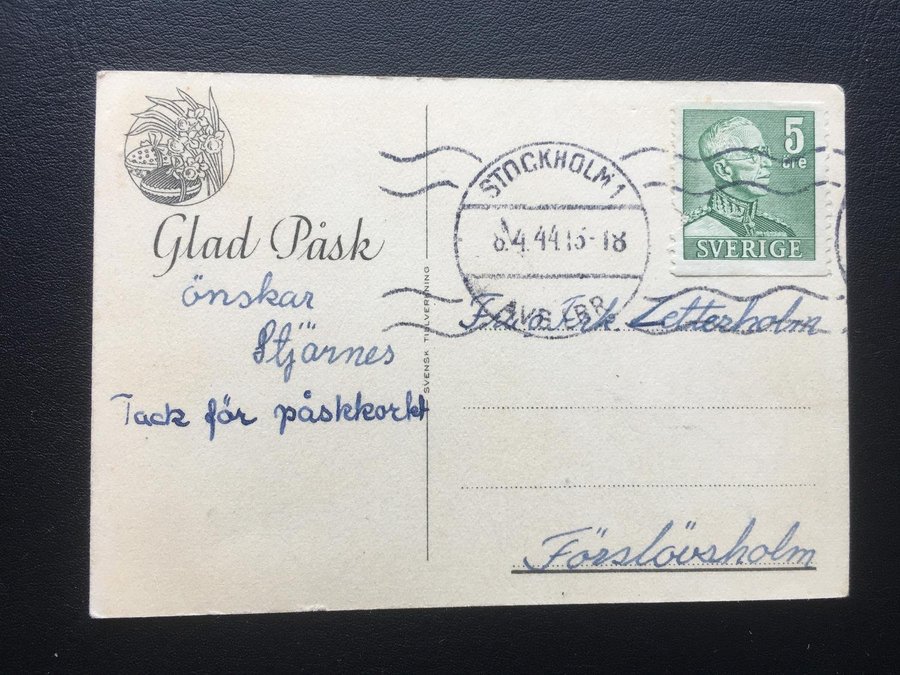 Glad Påsk
önskar
Stjärnes
Tack för påskkorkt
SVENSK TILLVERKNING
STOCKHOLM 1
8.4.44.15-18
AVG LBR
5
öre
SVERIGE
Zetterholm
Förslövsholm